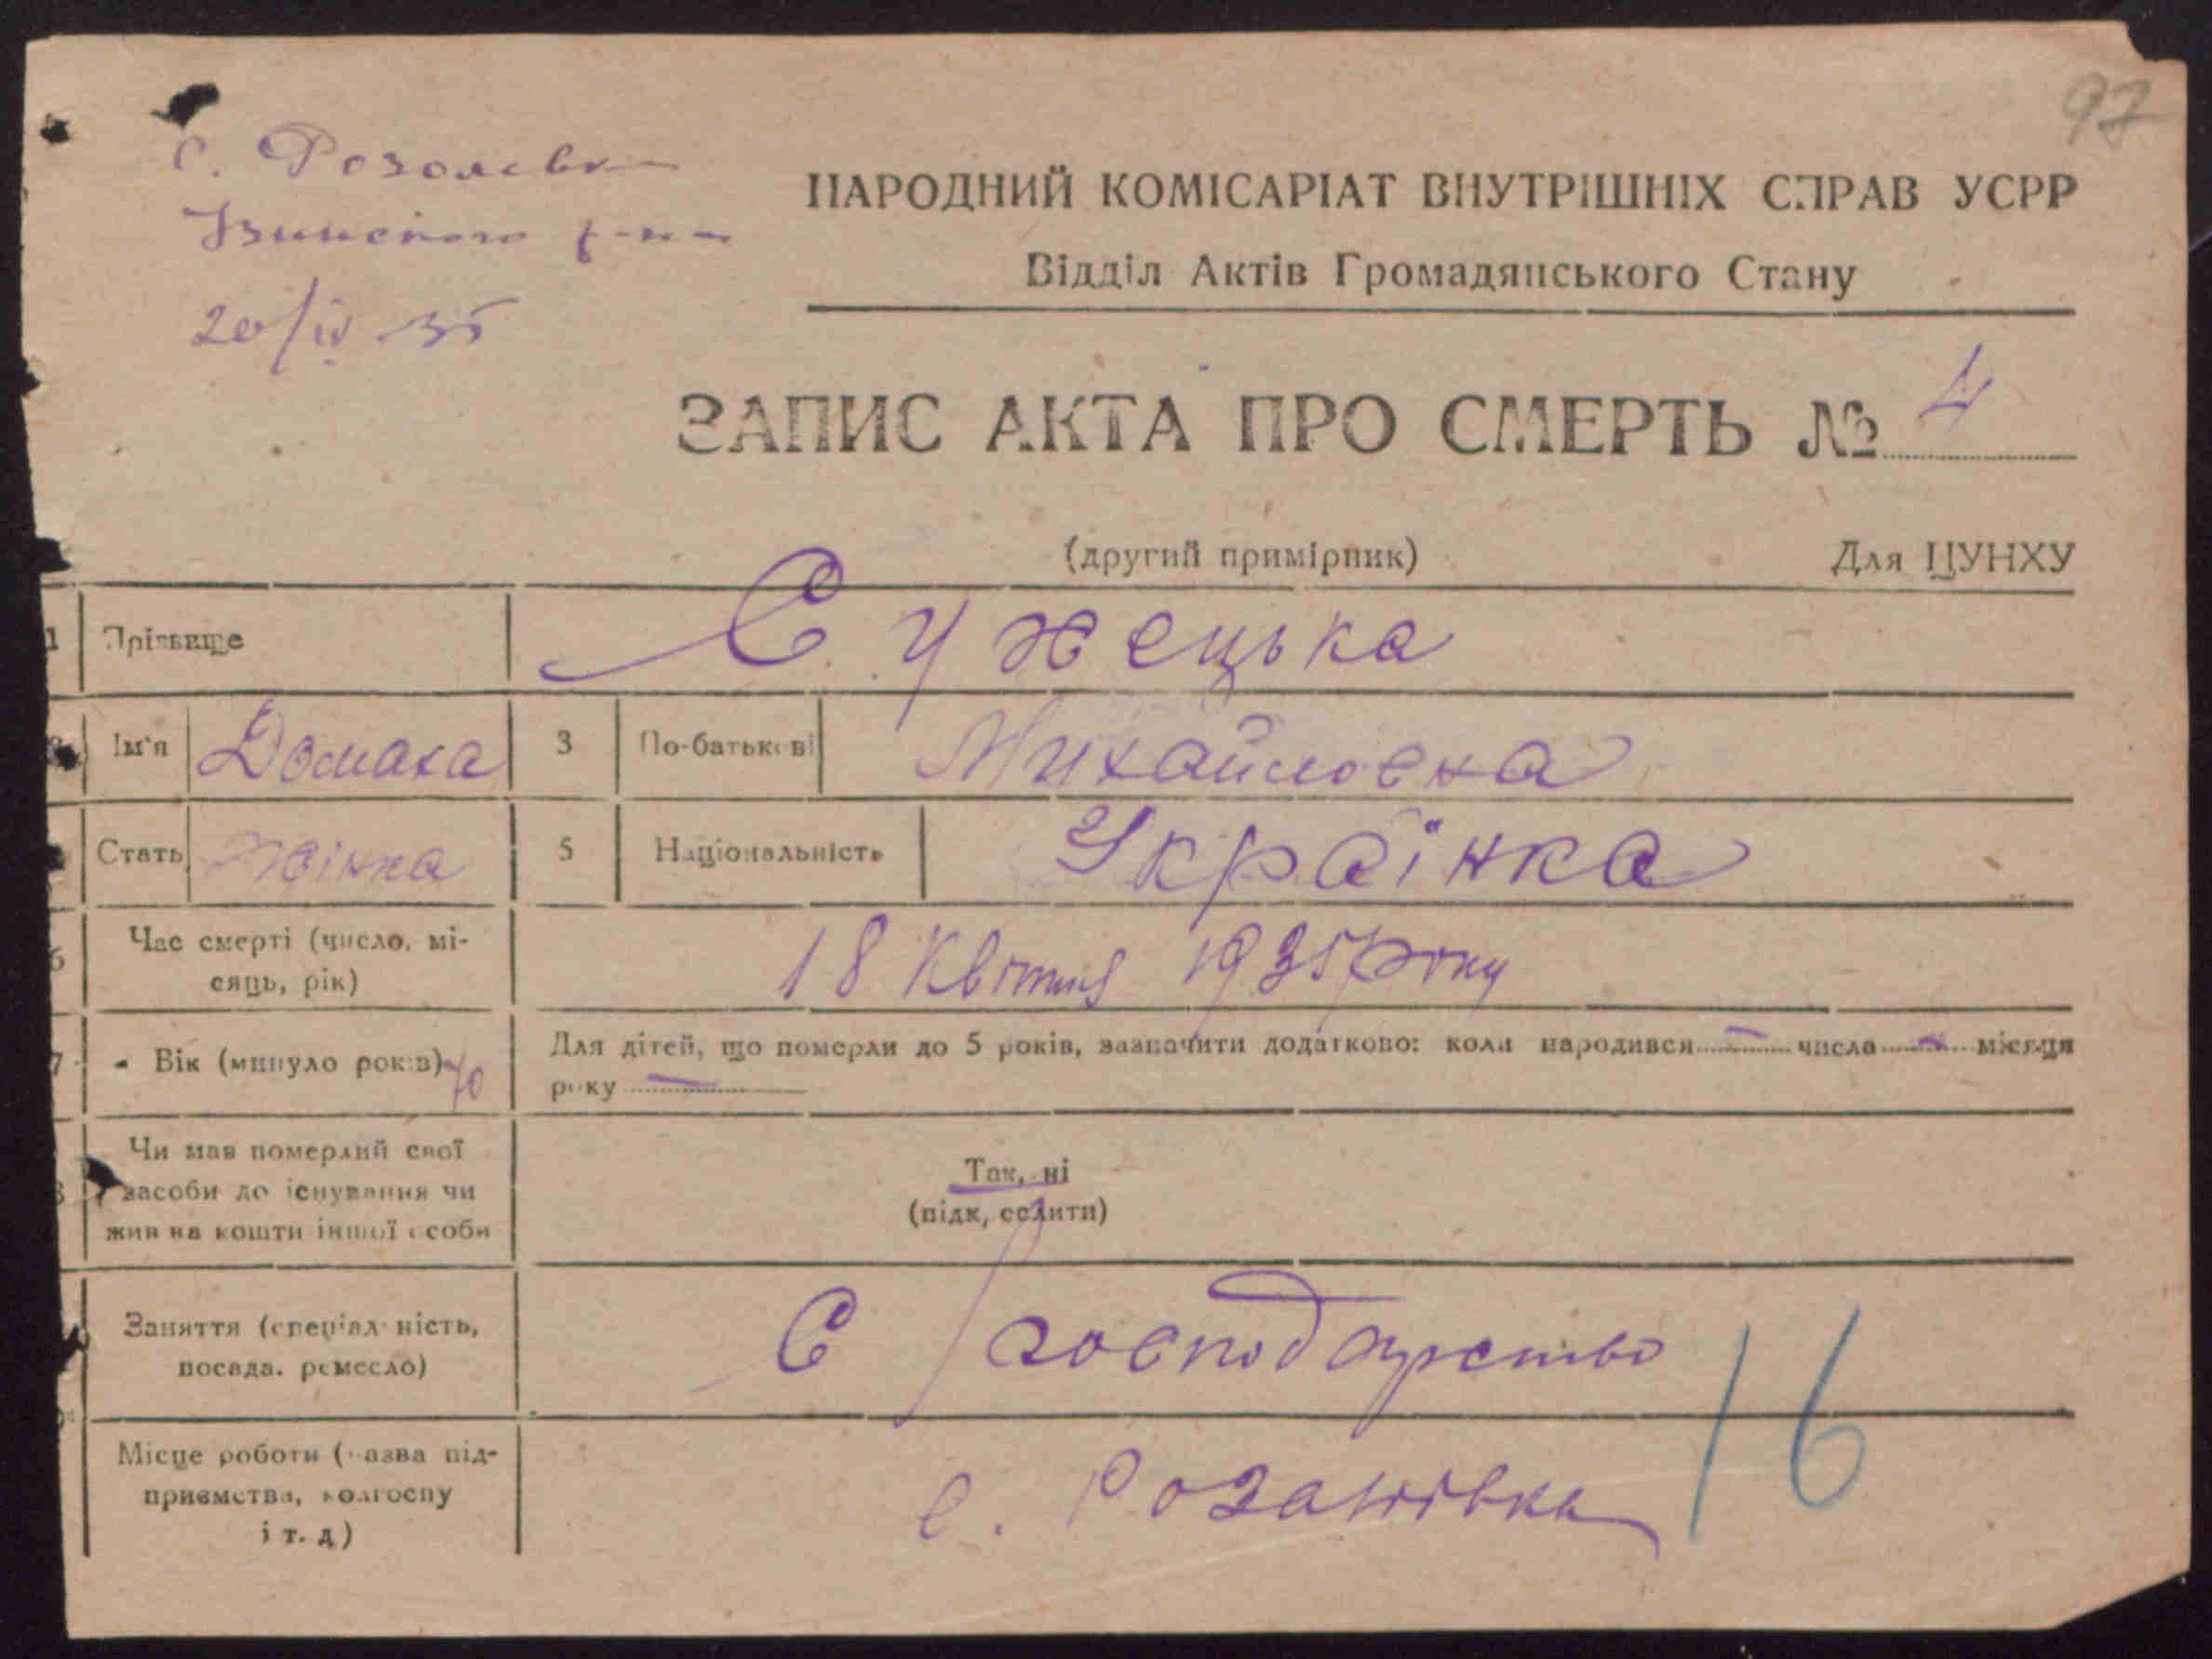 97
с. Розалівка
р-на
20/IV 35
НАРОДНИЙ КОМІСАРІАТ ВНУТРІШНІХ СПРАВ УСРР
Відділ Актів Громадянського Стану
ЗАПИС АКТА ПРО СМЕРТЬ № 4
(другий примірник)
Для ЦУНХУ
1 Прізвище Сужецька
Ім'я Домаха 3 По-батькові Михайловна
Стать Жінка 5 Національність Українка
6 Час смерті (число, мі-
сяць, рік) 18 Квітня 1935 року
7 Вік (минуло років) 70 Для дітей, що померли до 5 років, зазначити додатково: коли народився — числа — місяця
року —
Чи мав померлий свої
засоби до існування чи
жив на кошти іншої особи
Так, ні
(підкреслити)
Заняття (спеціальність,
посада, ремесло) С/господарство
16
Місце роботи (назва під-
приємства, колгоспу
і т. д)
с.